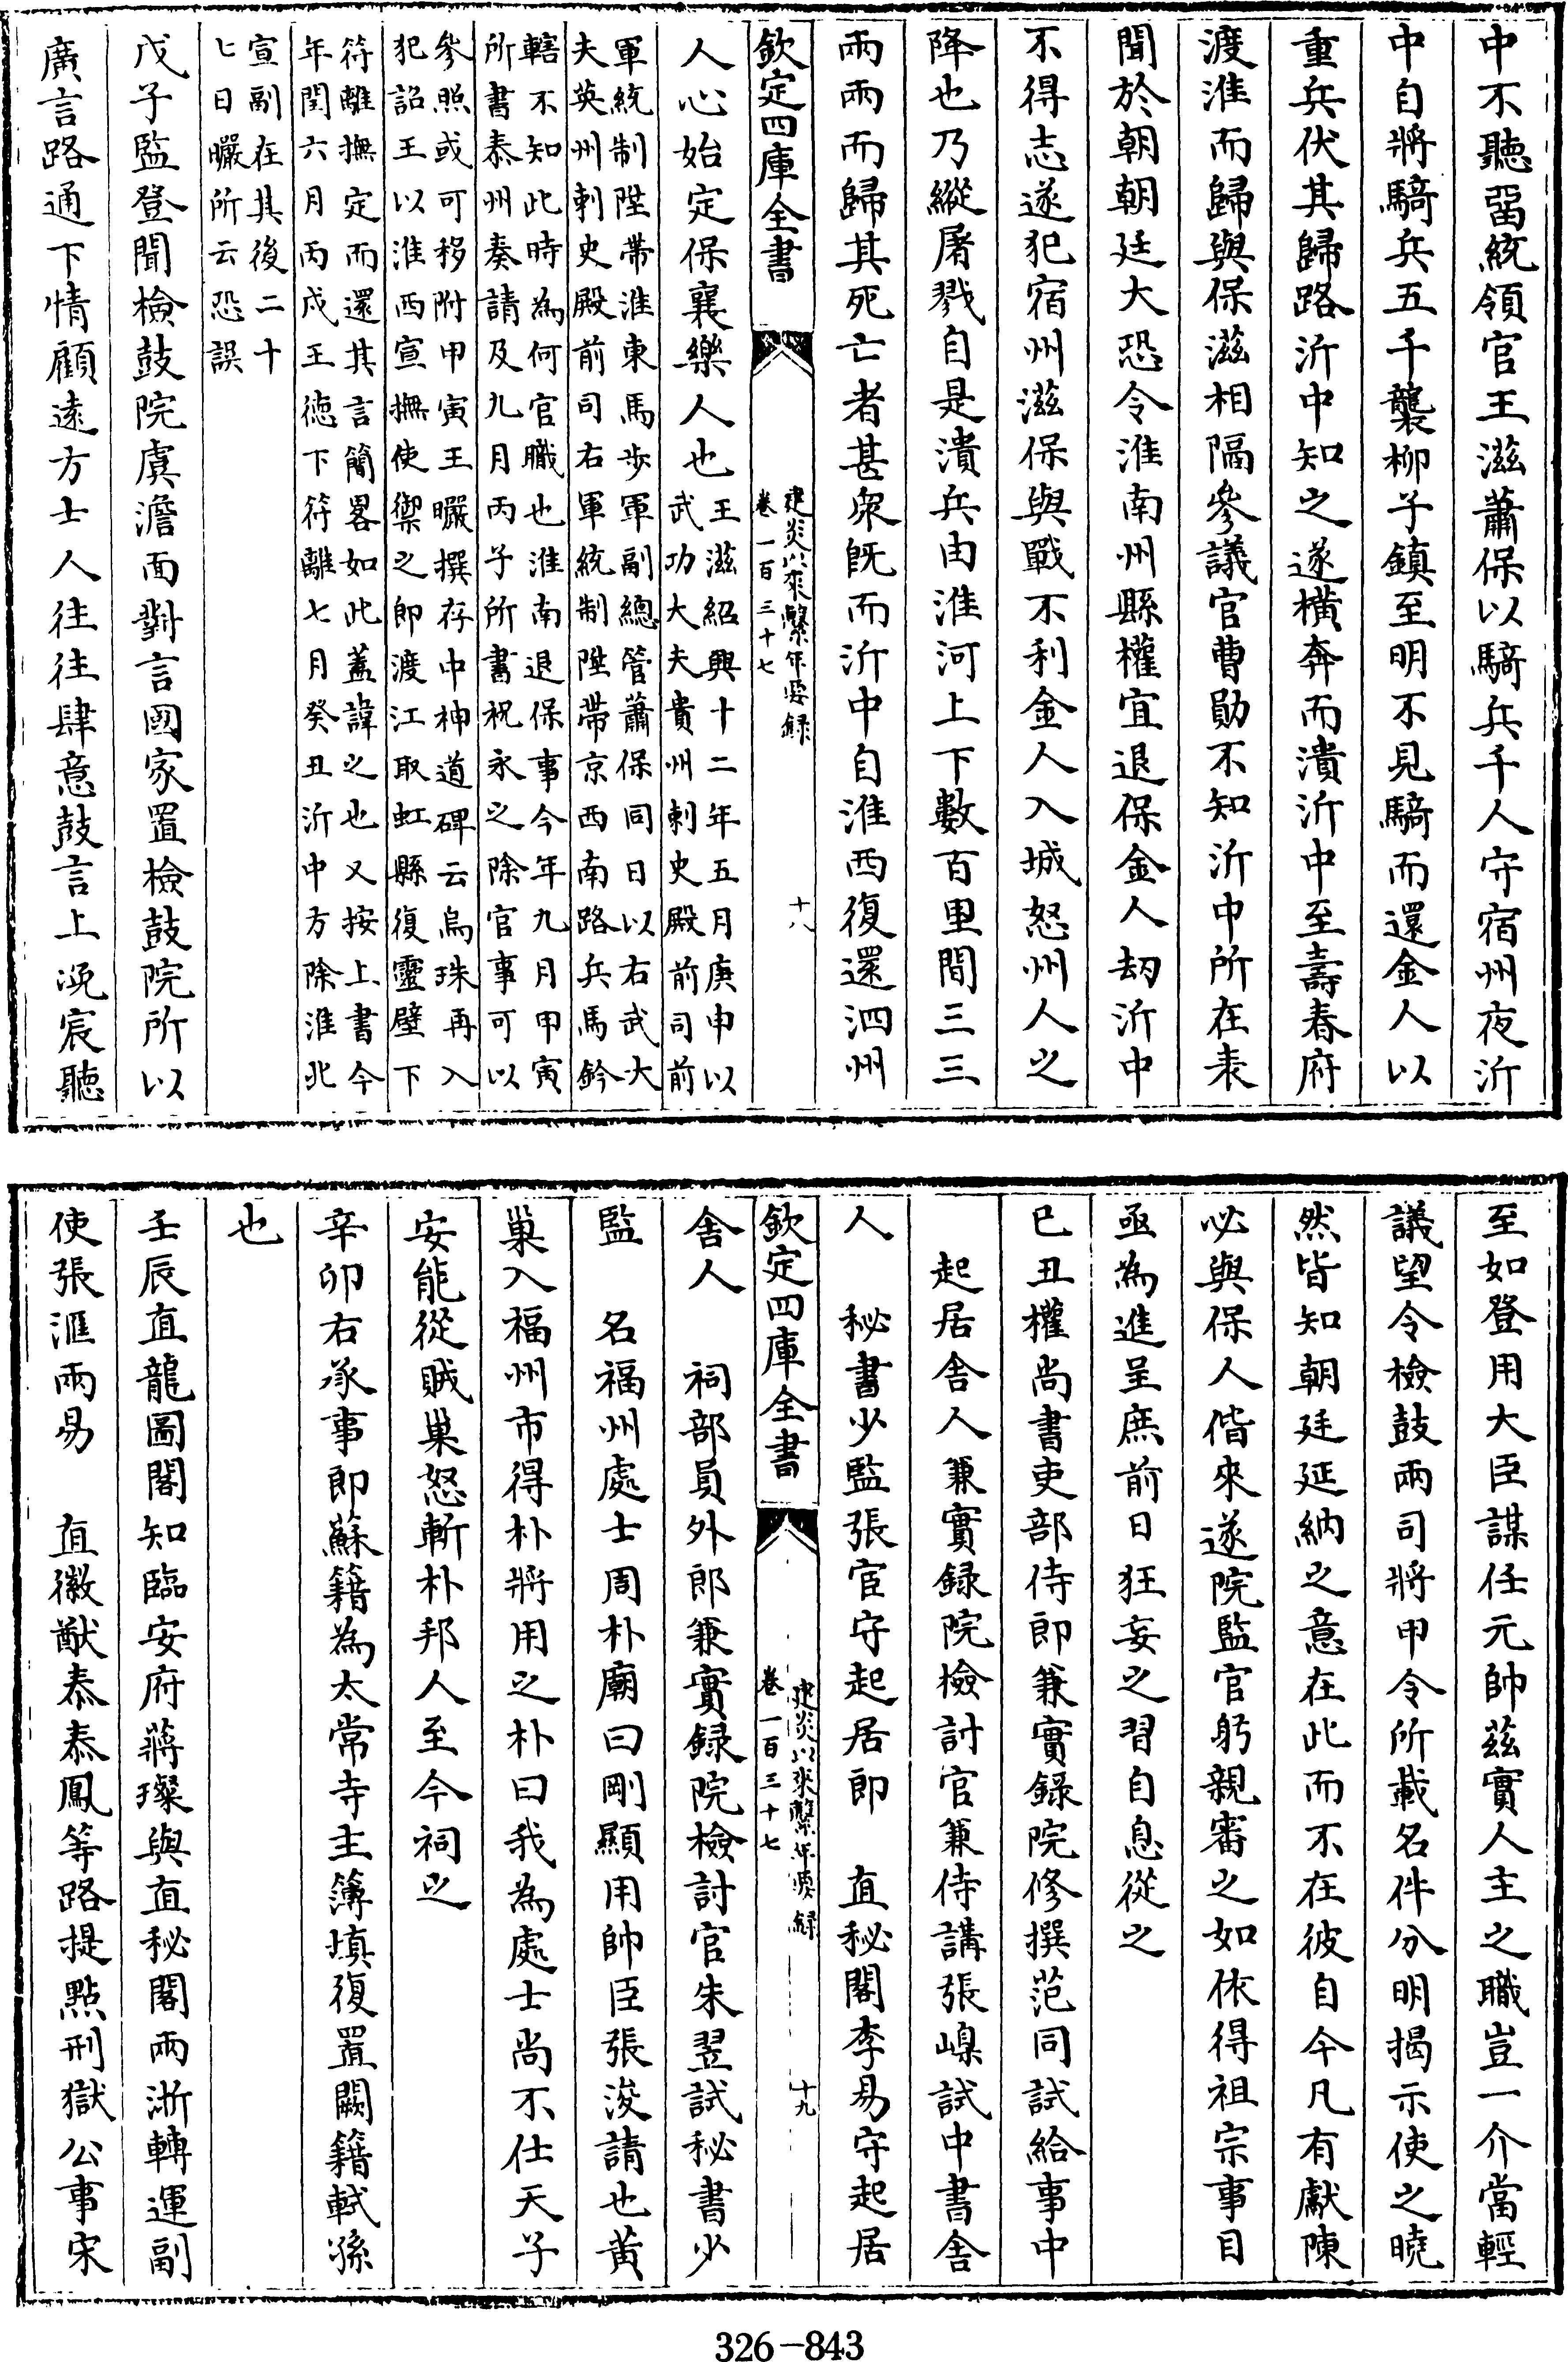 中不聽畱統領官王滋蕭保以騎兵千人守宿州夜沂
中自將騎兵五千襲柳子鎮至明不見騎而還金人以
重兵伏其歸路沂中知之遂橫奔而潰沂中至壽春府
渡淮而歸與保滋相隔參議官曹勛不知沂中所在表
聞於朝朝廷大恐令淮南州縣權宜退保金人刼沂中
不得志遂犯宿州滋保與戰不利金人入城怒州人之
降也乃縱屠戮自是潰兵由淮河上下數百里間三三
兩兩而歸其死亡者甚衆既而沂中自淮西復還泗州
欽定四庫全書
建炎以來繫年要録
卷一百三十七
十八
人心始定保襄樂人也
王滋紹興十二年五月庚申以
武功大夫貴州刺史殿前司前
軍統制陞帶淮東馬步軍副總管蕭保同日以右武大
夫英州刺史殿前司右軍統制陞帶京西南路兵馬鈐
轄不知此時為何官職也淮南退保事今年九月甲寅
所書泰州奏請及九月丙子所書祝永之除官事可以
參照或可移附甲寅王曮撰存中神道碑云烏珠再入
犯詔王以淮西宣撫使禦之即渡江取虹縣復靈壁下
符離撫定而還其言簡畧如此蓋諱之也又按上書今
年閏六月丙戌王德下符離七月癸丑沂中方除淮北
宣副在其後二十
七日曮所云恐誤
戊子監登聞檢鼓院虞澹面對言國家置檢鼓院所以
廣言路通下情顧遠方士人往往肆意鼓言上浼宸聽
至如登用大臣謀任元帥茲實人主之職豈一介當輕
議望令檢鼓兩司將甲令所載名件分明揭示使之曉
然皆知朝廷延納之意在此而不在彼自今凡有獻陳
必與保人偕來遂院監官躬親審之如依得祖宗事目
亟為進呈庶前日狂妄之習自息從之
已丑權尚書吏部侍郎兼實録院修撰范同試給事中
起居舍人兼實録院檢討官兼侍講張嵲試中書舍
人　秘書少監張宦守起居郎　直秘閣李易守起居
欽定四庫全書
建炎以來繫年要録
卷一百三十七
十九
舍人　祠部員外郎兼實録院檢討官朱翌試秘書少
監　名福州處士周朴廟曰剛顯用帥臣張浚請也黄
巢入福州市得朴將用之朴曰我為處士尚不仕天子
安能從賊巢怒斬朴邦人至今祠之
辛卯右承事郎蘇籍為太常寺主簿填復置闕籍軾孫
也
壬辰直龍圖閣知臨安府蔣璨與直秘閣兩浙轉運副
使張滙兩易　直徽猷泰泰鳳等路提點刑獄公事宋
326－843